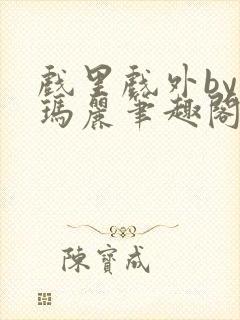 戲里戲外by
瑪麗筆趣閣
陳寶成